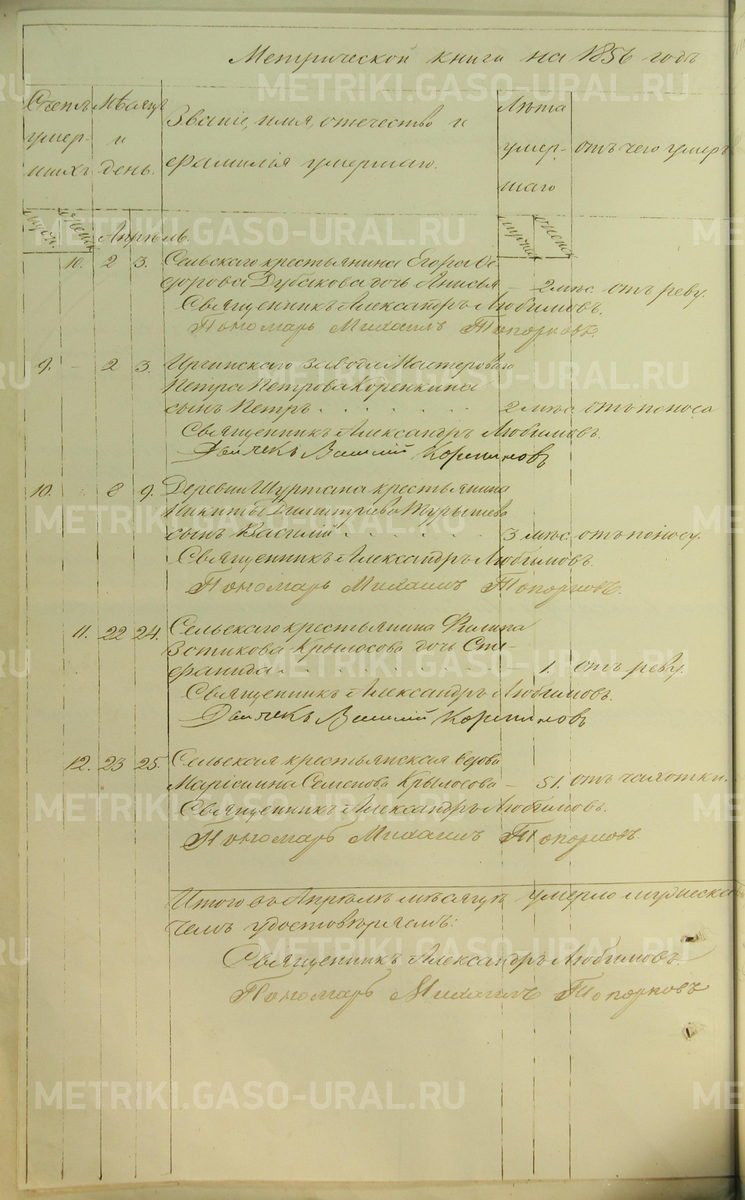 Метрической книги на 1856 годъ
Счетъ умер- шихъ
Мѣсяцъ и день.
Званіе, имя, отечество и
фамилія умершаго.
Лѣта умер- шаго
отъ чего умеръ
Апрѣль.
10. 2 3. Сельскаго крестьянина Егора Ѳе-
дорова дочь Анисья — 2 мѣс. отъ реву.
Священникъ Александръ Любимовъ.
Пономарь Михаилъ Топорковъ.
9. - 2 3. Иргинскаго завода Мастероваго
Петра Петрова Коренкина
сынъ Петръ . . . . . . . 2 мѣс. отъ поноса
Священникъ Александръ Любимовъ.
Дьячекъ Василій
10. - 8 9. Деревни Шуртана крестьянина
Никиты Димитріева
сынъ Василій . . . . . . 3 мѣс. отъ поносу.
Священникъ Александръ Любимовъ.
Пономарь Михаилъ Топорковъ.
11. 22 24. Сельскаго крестьянина Филипа
Крылосова дочь Сте-
фанида . . . . . . . . . — 1. отъ реву.
Священникъ Александръ Любимовъ.
Дьячекъ Василій
12. 23 25. Сельская крестьянская вдова
Семенова Крылосова — 51. отъ чахотки.
Священникъ Александръ Любимовъ.
Пономарь Михаилъ Топорковъ.
Итого въ Апрѣлѣ мѣсяцѣ умерло
Чемъ удостовѣряемъ:
Священникъ Александръ Любимовъ.
Пономарь Михаилъ Топорковъ
METRIKI.GASO-URAL.RU